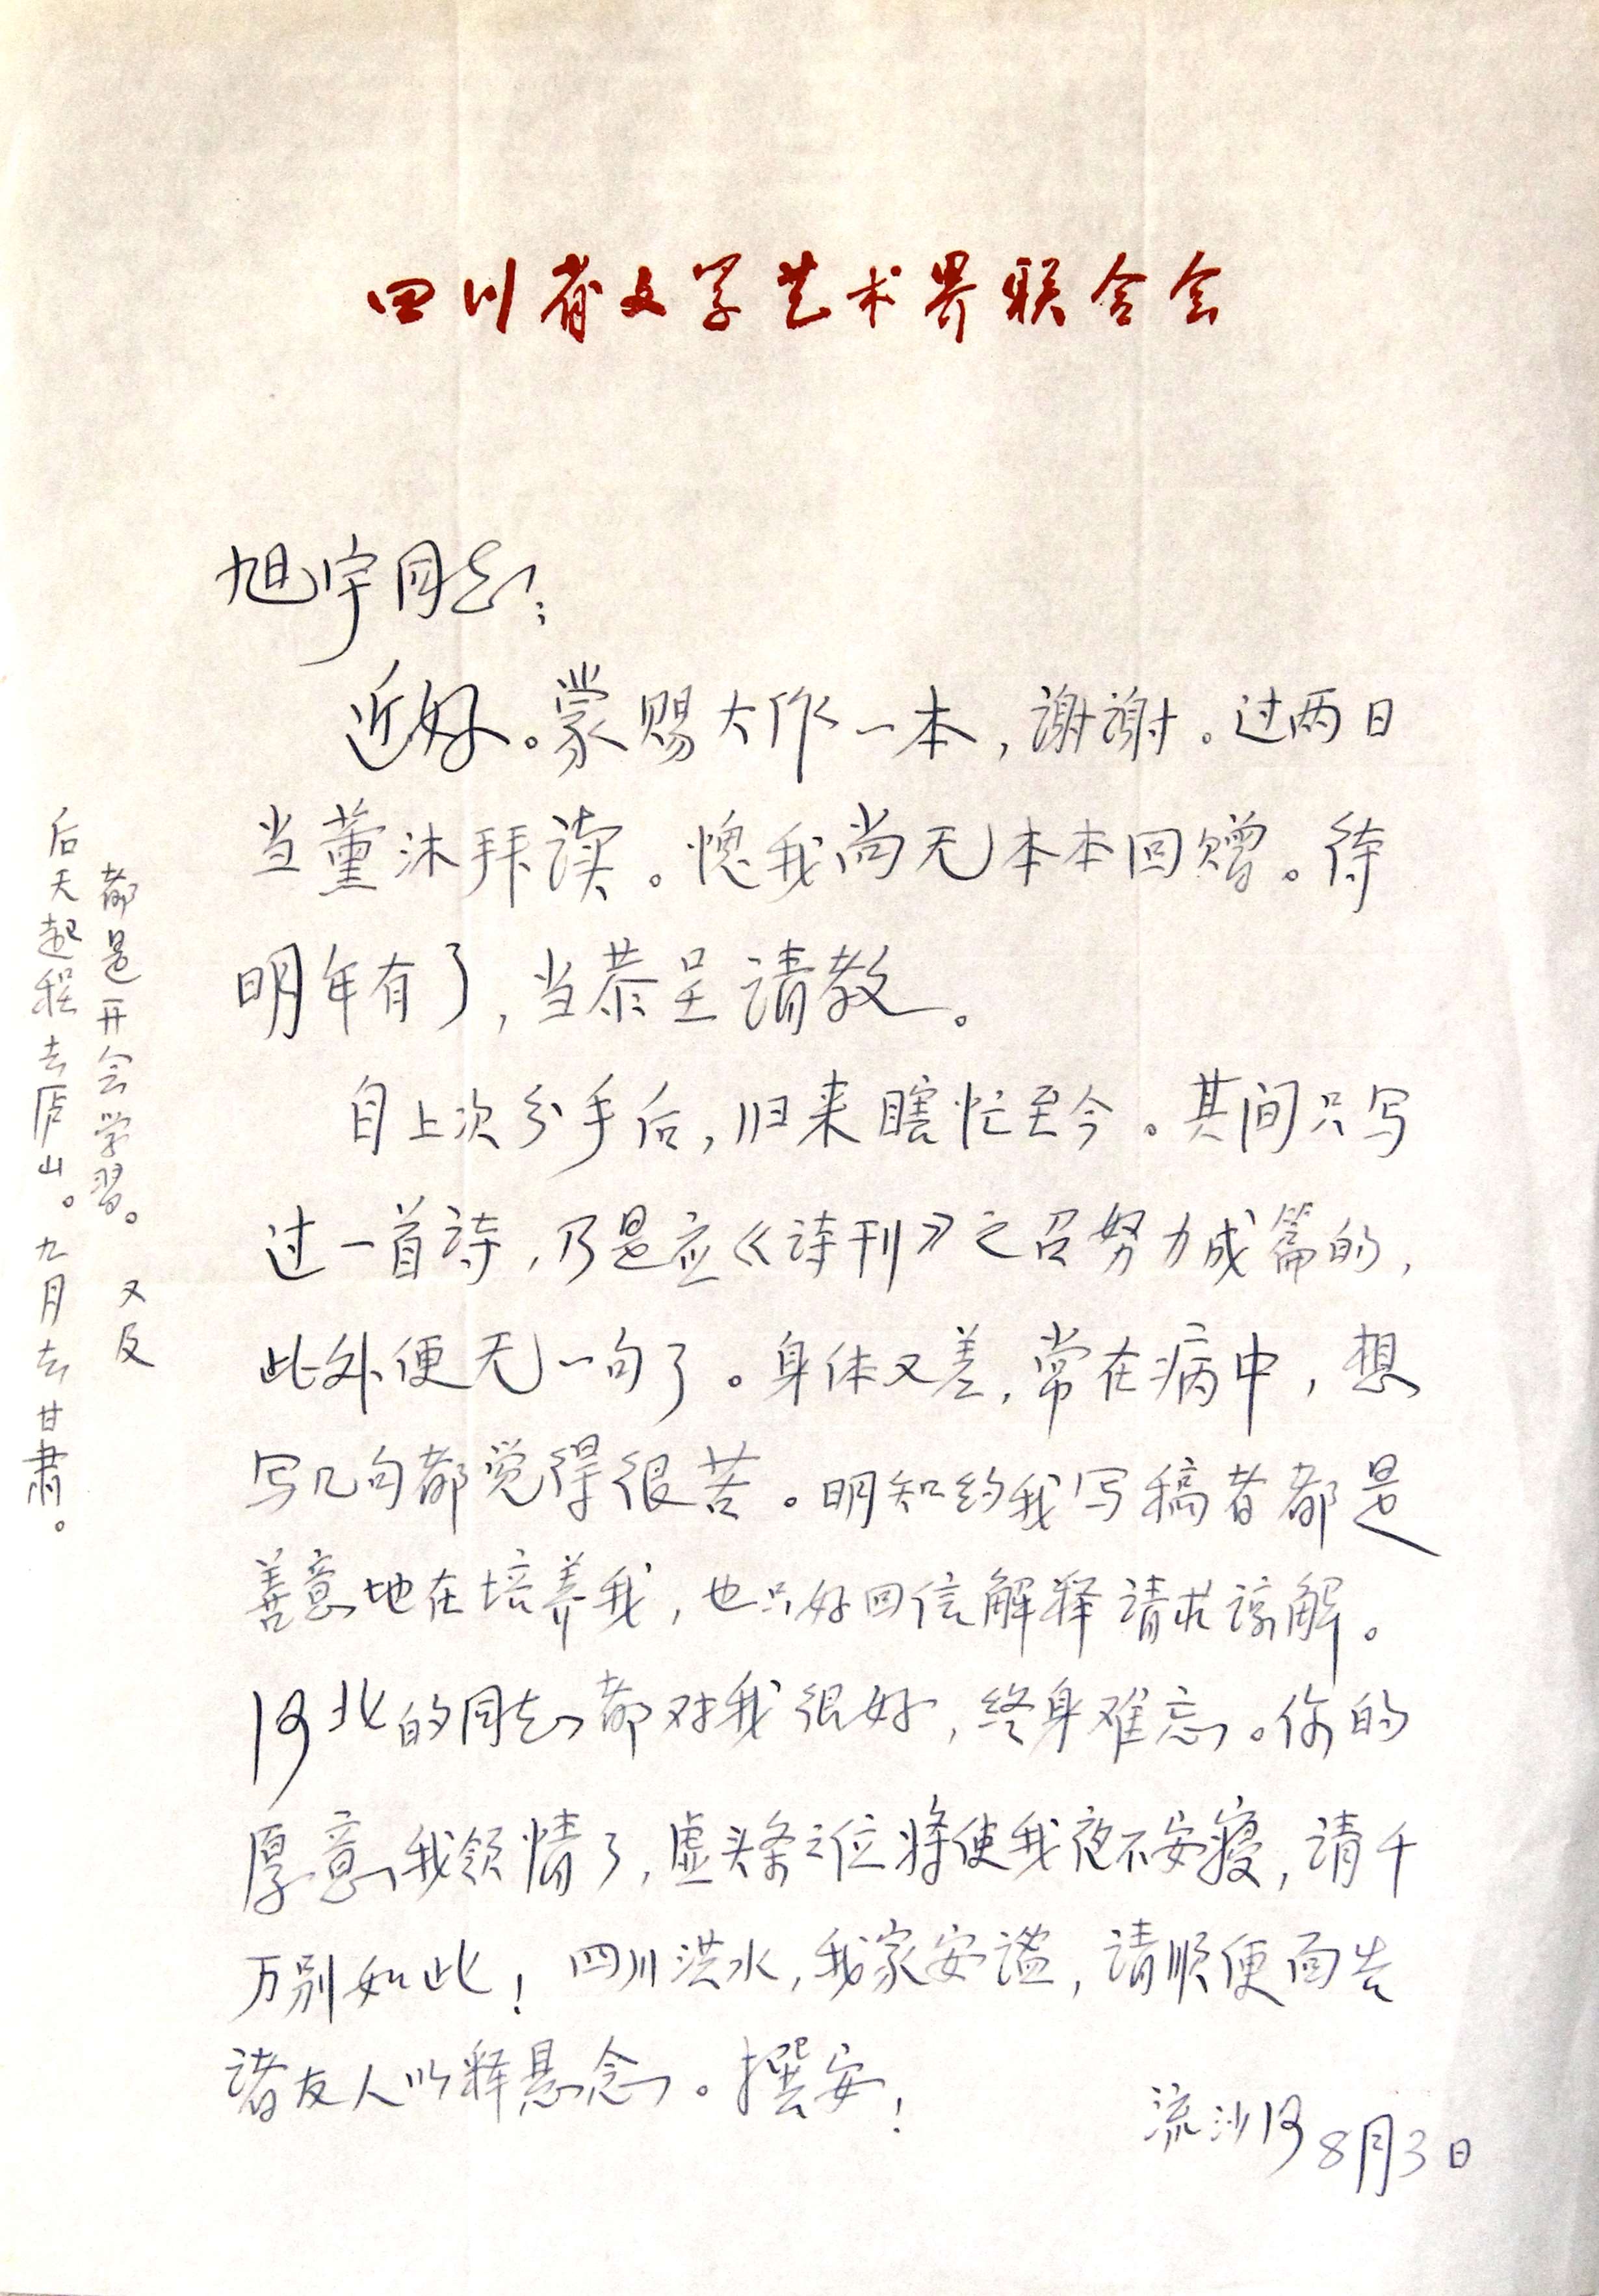 四川省文学艺术界联合会
旭宇同志：
近好。蒙赐大作一本，谢谢。过两日
当薰沐拜读。愧我尚无本本回赠。待
明年有了，当恭呈请教。
自上次分手后，归来瞎忙至今。其间只写
过一首诗，乃是应《诗刊》之召努力成篇的，
此外便无一句了。身体又差，常在病中，想
写几句都觉得很苦。明知约我写稿者都是
善意地在培养我，也只好回信解释请求谅解。
河北的同志都对我很好，终身难忘。你的
厚意我领情了，虚头条之位将使我夜不安寝，请千
万别如此！四川洪水，我家安谧，请顺便面告
诸友人以释悬念。撰安！
流沙河 8月3日
后天起程去庐山。九月去甘肃。
都是开会学习。又及